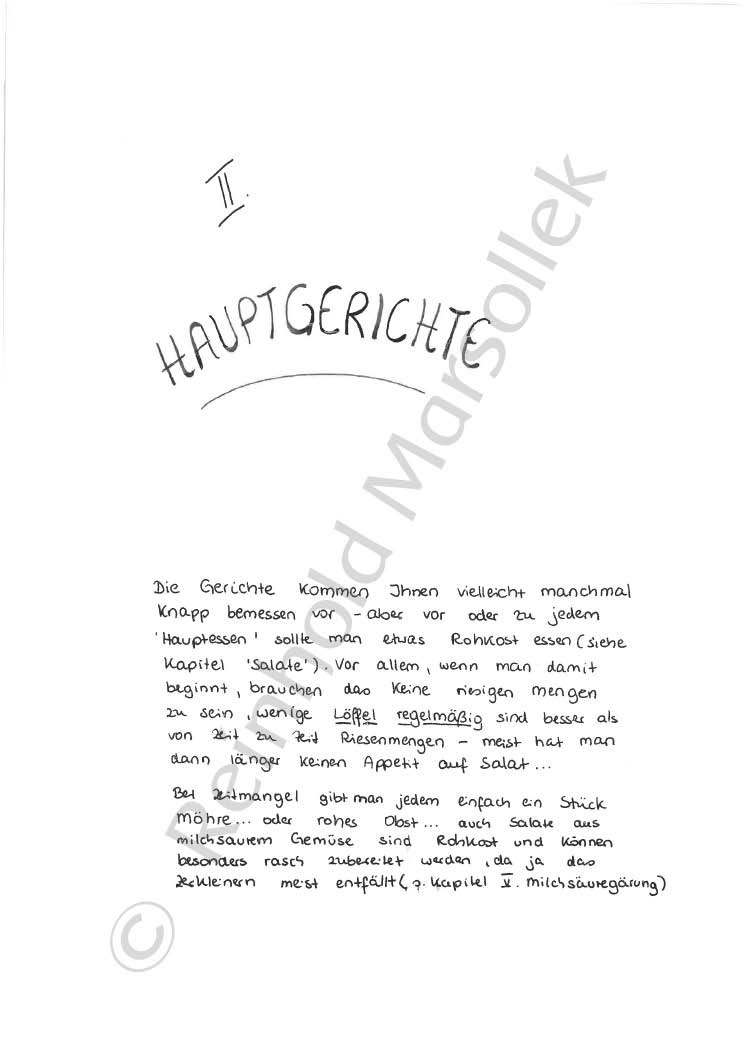 II.
HAUPTGERICHTE
Die Gerichte kommen Ihnen vielleicht manchmal
knapp bemessen vor - aber vor oder zu jedem
'Hauptessen' sollte man etwas Rohkost essen (siehe
Kapitel 'Salate'). Vor allem, wenn man damit
beginnt, brauchen das keine riesigen mengen
zu sein, wenige Löffel regelmäßig sind besser als
von Zeit zu Zeit Riesenmengen - meist hat man
dann länger keinen Appetit auf Salat...
Bei Zeitmangel gibt man jedem einfach ein Stück
Möhre... oder rohes Obst... auch Salate aus
milchsaurem Gemüse sind Rohkost und können
besonders rasch zubereitet werden, da ja das
Zerkleinern meist entfällt ( Kapitel V. Milchsäuregärung)
Reinhold Marsollek
©